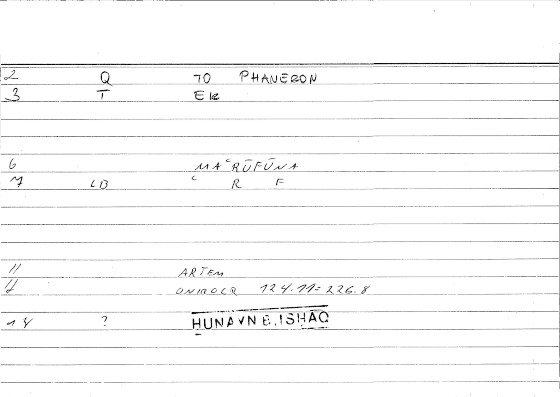 2 Q TO PHANERON
3 T EK
6 MAʿRŪFŪNA
7 LB ʿ R F
11 ARTEM
12 ONIROCR 124.11=226.8
14 ? HUNAYN B. ISHĀQ